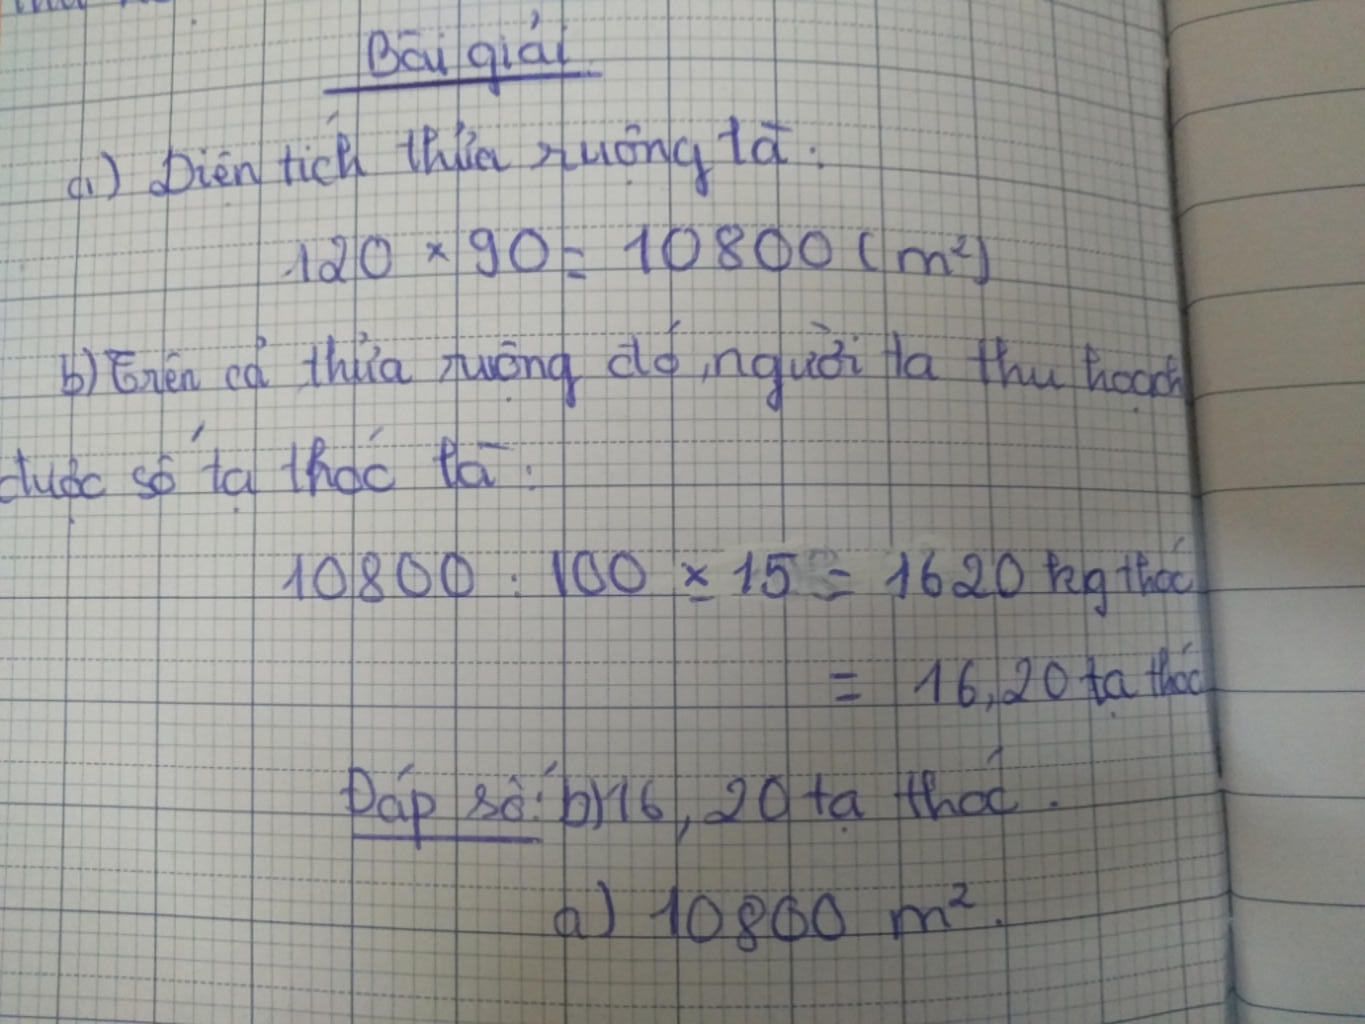 Bài giải
a) Diện tích thửa ruộng là:
120 × 90 = 10800 (m²)
b) Trên cả thửa ruộng đó, người ta thu hoạch
được số tạ thóc là:
10800 : 100 × 15 = 1620 kg thóc
= 16,20 tạ thóc
Đáp số: b) 16,20 tạ thóc.
a) 10800 m².